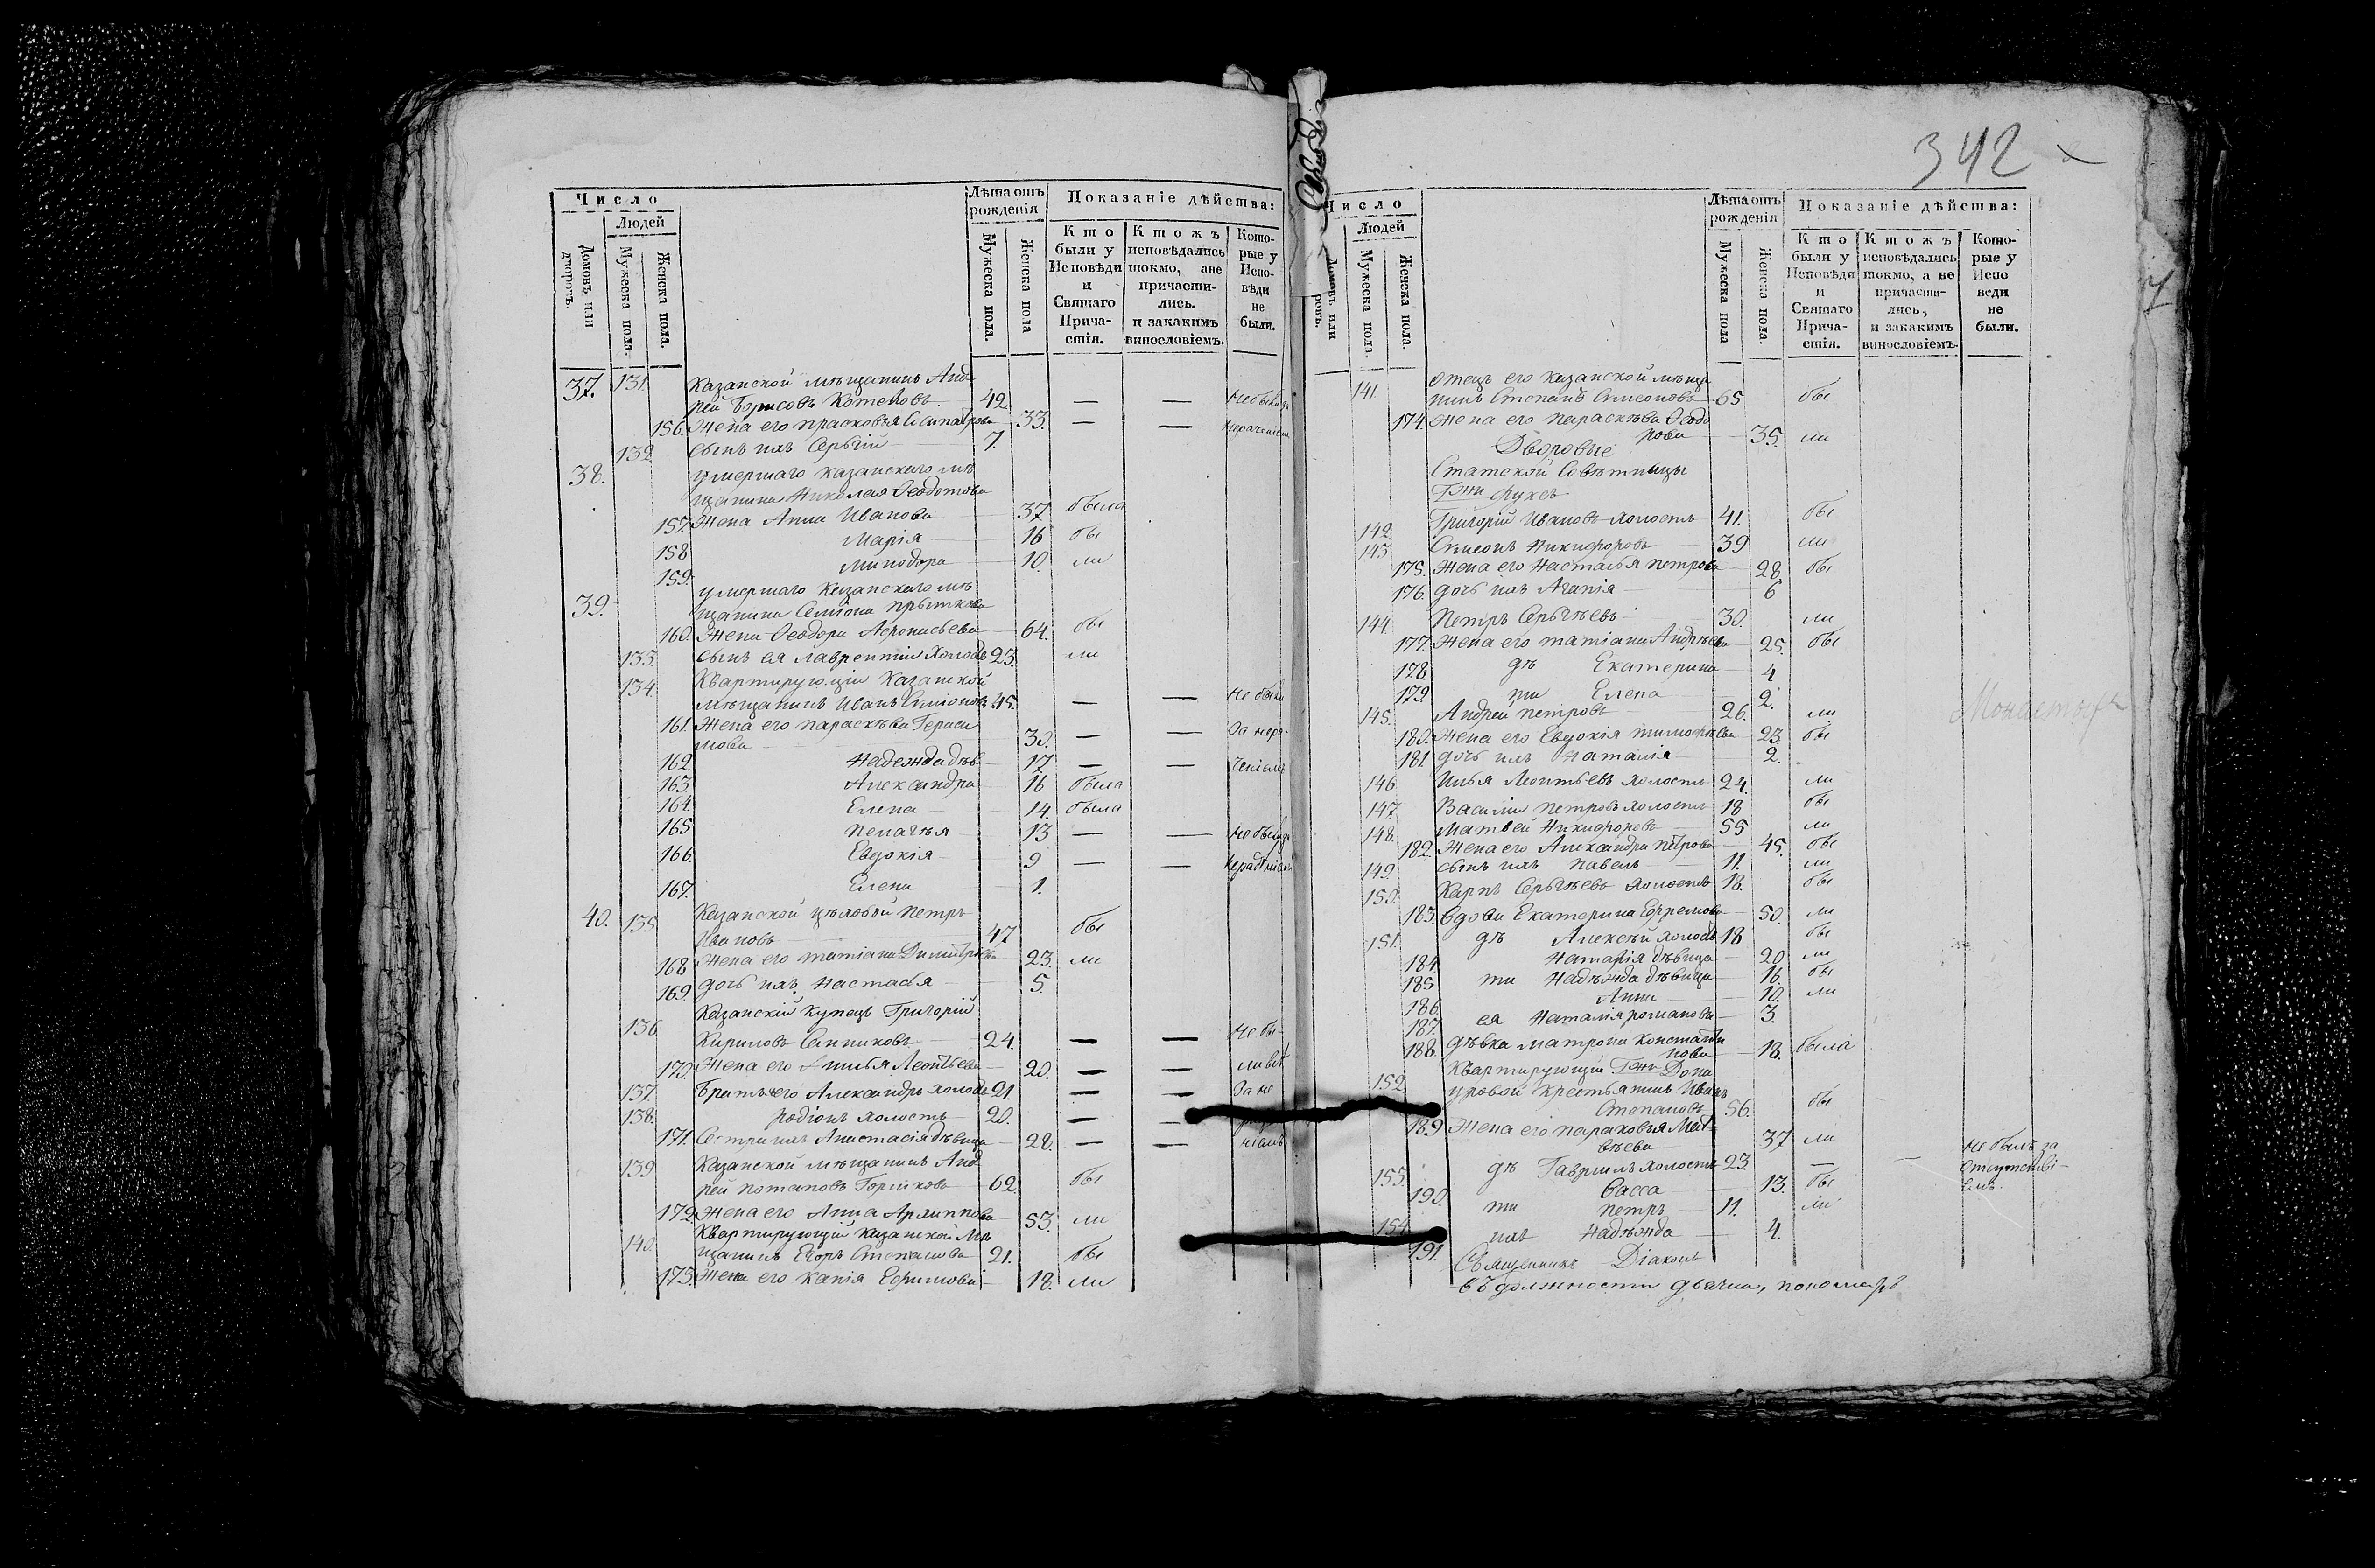 342
Число
Людей
Домовъ или дворовъ.
Мужеска пола.
Женска пола.
Лѣта отъ рожденія
Мужеска пола.
Женска пола
Показаніе дѣйства:
Кто были у Исповѣди и Святаго Причастія.
Ктожъ исповѣдались токмо, ане причастились. и закакимъ винословіемъ.
Которые у Исповѣди не были.
37. 131. Казанской мѣщанинъ Анд
рей Борисовъ Котеловъ 42. — — Небыли за
156. Жена его Прасковья Сосипатрова 33. — —
132. сынъ ихъ Сергій 7.
38. умершаго казанскаго мѣ
щанина Николая Ѳеодотова
157. Жена Анна Иванова 37. была
158 Марія 16 бы
159. Минодора 10. ли
39. умершаго Казанскаго мѣ
щанина Семіона Прыткова
160. Жена Ѳеодора Аѳонасьева 64. бы
133. сынъ ея Лаврентій холостъ 23. ли
134. Квартирующій Казанской
мѣщанинъ Иванъ Симіоновъ 45. — — Не были
161. Жена его Параскѣва Гераси
мова 30. — — За нера-
162. Надежда дѣв 17 — — ченіемъ
163 Александра 16 была
164. Елена 14. была
165 Пелагѣя 13 — — Не были за
166. Евдокія 9 — —
167. Елена 1.
40. 135. Казанской цѣховой Петръ
Ивановъ 47 бы
168. Жена его Татіана Димитріева 23. ли
169. дочь ихъ Настасья 5.
136. Казанскій Купецъ Григорій
Кириловъ Санниковъ 24. — — Не бы-
170. Жена его Леонтьева 20. — — ли
137. Братъ его Александръ холостъ 21. — — За не
138. Родіонъ холостъ 20. — —
171. Сестра ихъ Анастасія дѣвица 28. — — ніемъ
139. Казанской мѣщанинъ Анд
рей Потаповъ Горшковъ 62. бы
172. Жена его Анна Архиппова 53. ли
140. Квартирующій Казанской мѣ
щанинъ Егоръ Степановъ 21. бы
173. Жена его Капія Ефимова 18. ли
Число
Людей
Домовъ или
Мужеска пола.
Женска пола.
Лѣта отъ рожденія
Мужеска пола
Женска пола.
Показаніе дѣйства:
Кто были у Исповѣди и Святаго Причастія.
Ктожъ исповѣдались токмо, а не причастились, и закакимъ винословіемъ.
Которые у Исповеди не были.
141. Отецъ его казанской мѣща
нинъ Степанъ Симеоновъ 65 бы
174. Жена его Параскѣва Ѳеодо
рова 35. ли
Дворовые
Статской Совѣтницы
Гжи Фуксъ
142. Григорій Ивановъ холостъ 41. бы
143. Симеонъ Никифоровъ 39 ли
175. Жена его Настасья Петрова 28 бы
176. дочь ихъ Агапія 6
144. Петръ Сергѣевъ 30. ли
177. Жена его Татіана Андрѣева 25. бы
178. дѣ Екатерина 4
179. ти Елена 2.
145. Андрей Петровъ 26. ли
180. Жена его Евдокія Тимоѳѣева 23 бы
181. дочь ихъ Наталія 2.
146. Илья Леонтьевъ холостъ 24. ли
147. Василій Петровъ холостъ 18 бы
148. Матвей Никифоровъ 55 ли
182. Жена его Александра Петрова 45. бы
149. сынъ ихъ Павелъ 11. ли
150. Карпъ Сергѣевъ холостъ 18. бы
183. Вдова Екатерина Ефремова 50. ли
151. дѣ Алексѣй холостъ 18 бы
184. Наталія дѣвица 20 ли
185 ти Надѣжда дѣвица 16. бы
186. Анна 10. ли
187. ея Наталія Романова 3.
188. дѣвка Матрона Константи
нова 18. была
152. Квартирующій Гжи
крестьянинъ Иванъ
Степановъ 56. бы
189. Жена его Парасковья Мат-
вѣева 37 ли
153. дѣ Гавріилъ холостъ 23. — — Не былъ за
отсутстві-
емъ.
190. Васса 13. бы
154. ти Петръ 11. ли
191. ихъ Надѣжда 4.
Священникъ Діаконъ
въ должности дьячка, пономарь
Монастырь